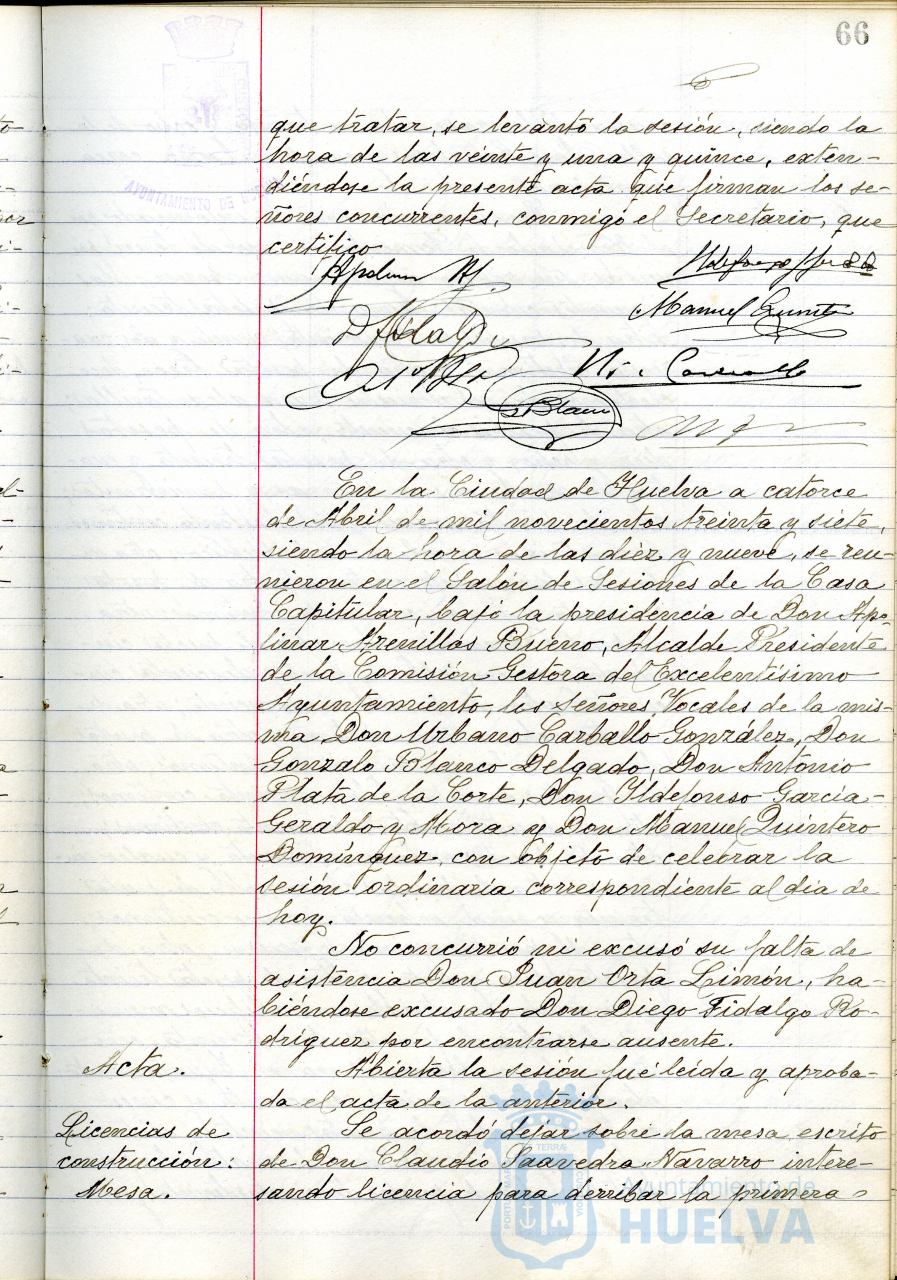 66
que tratar, se levantó la sesión, siendo la
hora de las veinte y una y quince, exten-
diéndose la presente acta que firman los se-
ñores concurrentes, conmigo el Secretario, que
certifico
Manuel Quintero
D Fidalgo
Blanco
En la Ciudad de Huelva a catorce
de Abril de mil novecientos treinta y siete,
siendo la hora de las diez y nueve, se reu-
nieron en el Salón de Sesiones de la Casa
Capitular, bajo la presidencia de Don Apo-
linar Arenillas Bueno, Alcalde Presidente
de la Comisión Gestora del Excelentísimo
Ayuntamiento, los señores Vocales de la mis-
ma Don Urbano Carballo González, Don
Gonzalo Blanco Delgado, Don Antonio
Plata de la Corte, Don Ildefonso García-
Geraldo y Mora y Don Manuel Quintero
Domínguez, con objeto de celebrar la
sesión ordinaria correspondiente al dia de
hoy.
No concurrió ni excusó su falta de
asistencia Don Juan Orta Limón, ha-
biéndose excusado Don Diego Fidalgo Ro-
dríguez por encontrarse ausente.
Acta.
Abierta la sesión fué leída y aproba-
da el acta de la anterior.
Licencias de
construcción:
Mesa.
Se acordó dejar sobre la mesa escrito
de Don Claudio Saavedra Navarro intere-
sando licencia para derribar la primera
AYUNTAMIENTO DE
Ayuntamiento de
HUELVA